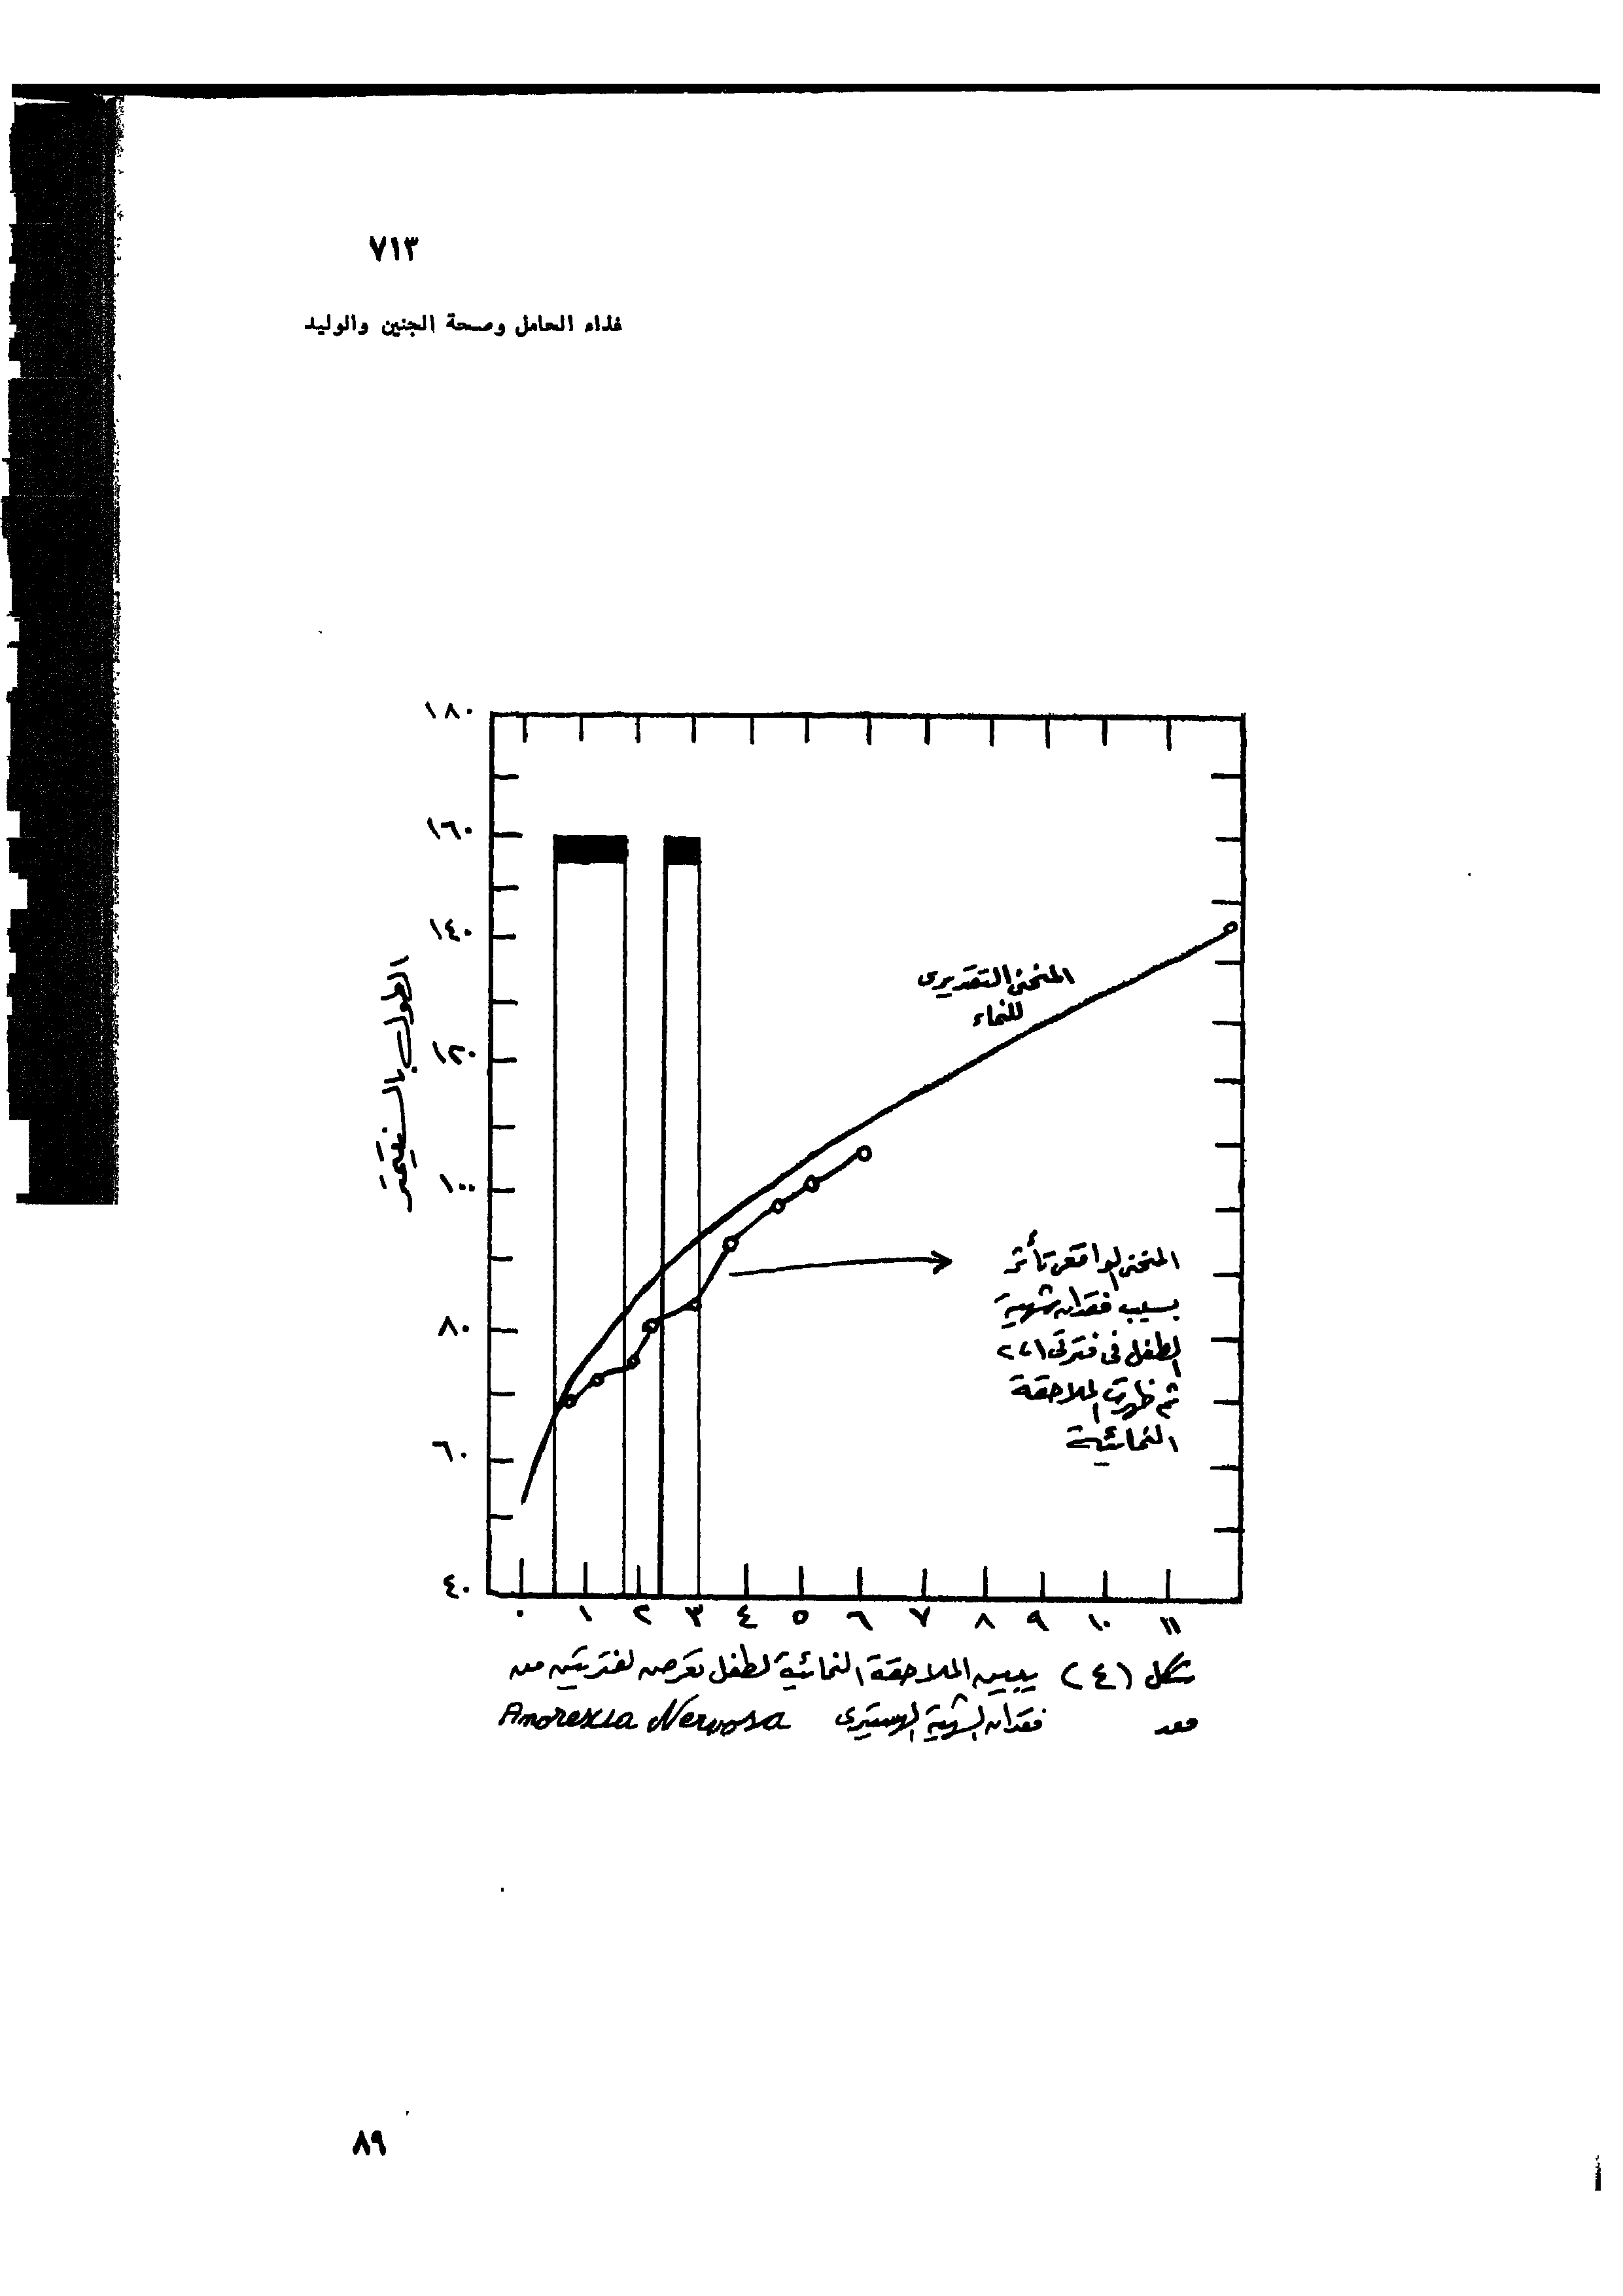 ٧١٣
غذاء الحامل وصحة الجنين والوليد
١٨٠
١٦٠
١٤٠
١٢٠
١٠٠
٨٠
٦٠
٤٠
الطول بالسنتيمتر
المنحنى التقديرى
للنماء
المنحنى الواقعى تأثر
بسبب فقدان شهية
الطفل فى فترتى ١، ٢
ثم ظهرت الملاحقة
النمائية
٠ ١ ٢ ٣ ٤ ٥ ٦ ٧ ٨ ٩ ١٠ ١١
شكل (٤) يبين الملاحقة النمائية لطفل تعرض لفترتين من
فقد فقدان الشهية الهستيرى Anorexia Nervosa
٨٩